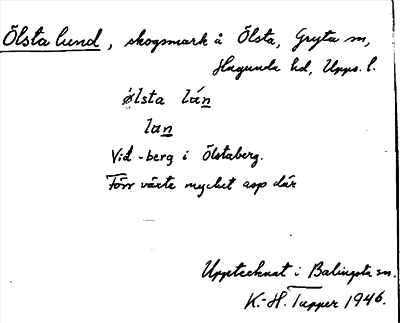 Ölsta lund, skogsmark å Ölsta, Gryta sn,
Hagunda hd, Upps. l.
ølsta lán
lan
Vid -berg i Ölstaberg.
Förr växte mycket asp där
Upptecknat i Balingsta sn.
K.-H. Tapper 1946.